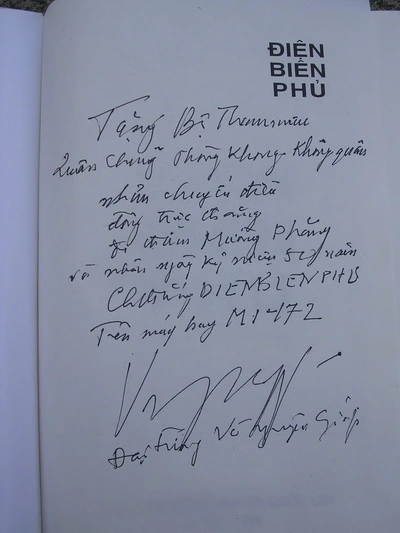 ĐIỆN
BIÊN
PHỦ
Tặng Bộ Tham mưu
Quân chủng Phòng Không - Không quân
nhân chuyến
động trực thăng
đi thăm Mường Phăng
và nhân ngày kỷ niệm 50 năm
Chiến thắng DIENBIENPHU
Trên máy bay MI-172
Đại tướng Võ Nguyên Giáp